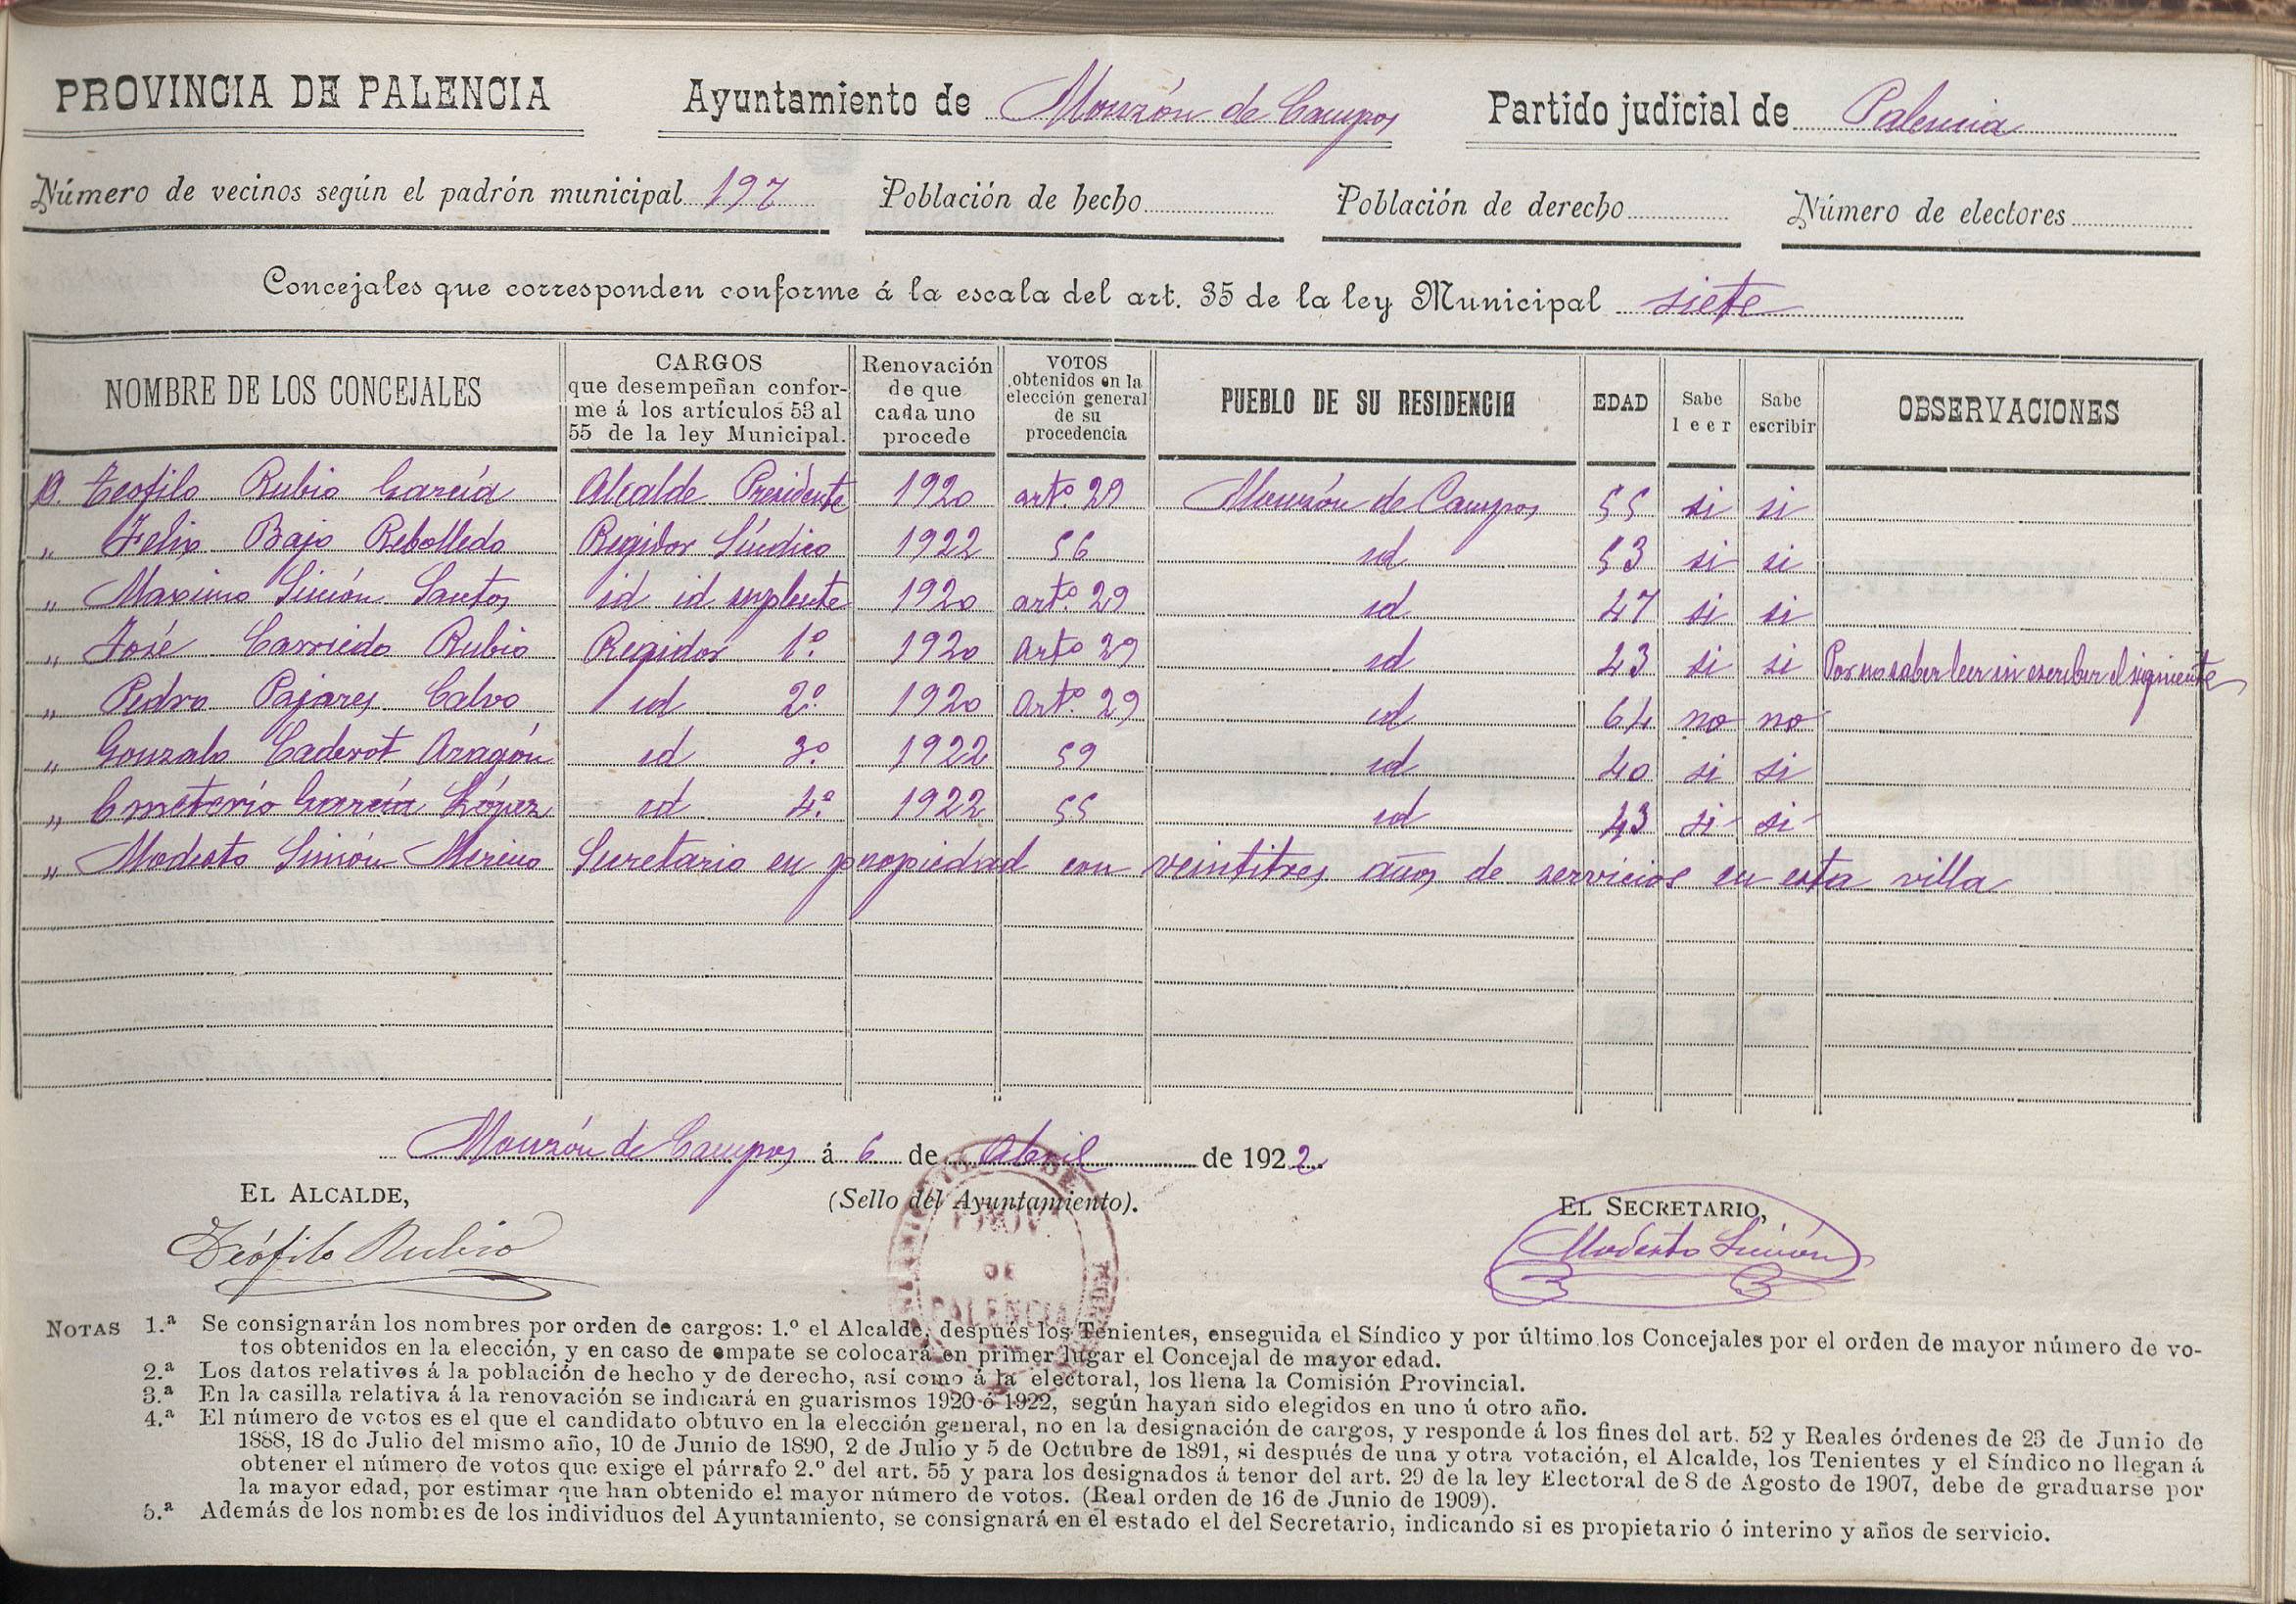 PROVINCIA DE PALENCIA Ayuntamiento de Monzón de Campos Partido judicial de Palencia
Número de vecinos según el padrón municipal 197 Población de hecho Población de derecho Número de electores
Concejales que corresponden conforme á la escala del art. 35 de la ley Municipal siete
NOMBRE DE LOS CONCEJALES CARGOS que desempeñan conforme á los artículos 53 al 55 de la ley Municipal. Renovación de que cada uno procede VOTOS obtenidos en la elección general de su procedencia PUEBLO DE SU RESIDENCIA EDAD Sabe leer Sabe escribir OBSERVACIONES
D. Teofilo Rubio García Alcalde Presidente 1920 artº 29 Monzón de Campos 55 si si
„ Felix Bajo Rebolledo Regidor Síndico 1922 56 id 53 si si
„ Maximo Simón Santos id id suplente 1920 artº 29 id 47 si si
„ José Carriedo Rubio Regidor 1º 1920 Artº 29 id 43 si si Por no saber leer ni escriber el siguiente
„ Pedro Pajares Calvo id 2º 1920 Artº 29 id 64 no no
„ Gonzalo Caderot Aragón id 3º 1922 59 id 40 si si
„ Emeterio García López id 4º 1922 55 id 43 si si
„ Modesto Simón Merino Secretario en propiedad con veintitres años de servicios en esta villa
Monzón de Campos á 6 de Abril de 1922.
EL ALCALDE, (Sello del Ayuntamiento). EL SECRETARIO,
Teófilo Rubio Modesto Simón
PROV.
DE
PALENCIA
NOTAS 1.ª Se consignarán los nombres por orden de cargos: 1.º el Alcalde, después los Tenientes, enseguida el Síndico y por último los Concejales por el orden de mayor número de vo-
tos obtenidos en la elección, y en caso de empate se colocará en primer lugar el Concejal de mayor edad.
2.ª Los datos relativos á la población de hecho y de derecho, así como á la electoral, los llena la Comisión Provincial.
3.ª En la casilla relativa á la renovación se indicará en guarismos 1920 ó 1922, según hayan sido elegidos en uno ú otro año.
4.ª El número de votos es el que el candidato obtuvo en la elección general, no en la designación de cargos, y responde á los fines del art. 52 y Reales órdenes de 23 de Junio de
1888, 18 de Julio del mismo año, 10 de Junio de 1890, 2 de Julio y 5 de Octubre de 1891, si después de una y otra votación, el Alcalde, los Tenientes y el Síndico no llegan á
obtener el número de votos que exige el párrafo 2.º del art. 55 y para los designados á tenor del art. 29 de la ley Electoral de 8 de Agosto de 1907, debe de graduarse por
la mayor edad, por estimar que han obtenido el mayor número de votos. (Real orden de 16 de Junio de 1909).
5.ª Además de los nombres de los individuos del Ayuntamiento, se consignará en el estado el del Secretario, indicando si es propietario ó interino y años de servicio.